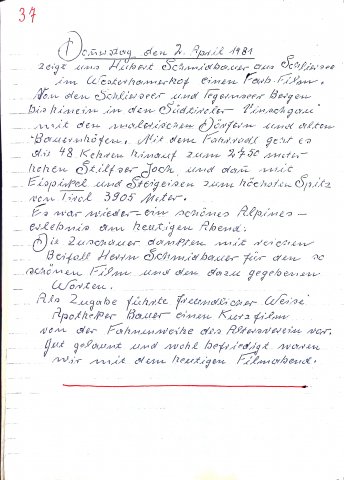 37
Donnerstag, den 2. April 1981
zeigt uns Hubert Schmidbauer aus Schliersee
im Westerhamerhof einen Farb-Film.
Von den Schlierseer und Tegernseer Bergen
bis hinein in den Südtiroler Vinschgau
mit den malerischen Dörfern und alten
Bauernhöfen. Mit dem Fahrradl geht es
die 48 Kehren hinauf zum 2750 meter
hohen Stilfser Joch und dann mit
Eispickel und Steigeisen zum höchsten Spitz
von Tirol 3905 Meter.
Es war wieder ein schönes Alpines-
erlebnis am heutigen Abend.
Die Zuschauer dankten mit reichen
Beifall Herrn Schmidbauer für den so
schönen Film und den dazu gegebenen
Worten.
Als Zugabe führte freundlicher Weise
Apotheker Bauer einen Kurzfilm
von der Fahnenweihe des Altersverein vor.
Gut gelaunt und wohl befriedigt waren
wir mit dem heutigen Filmabend.